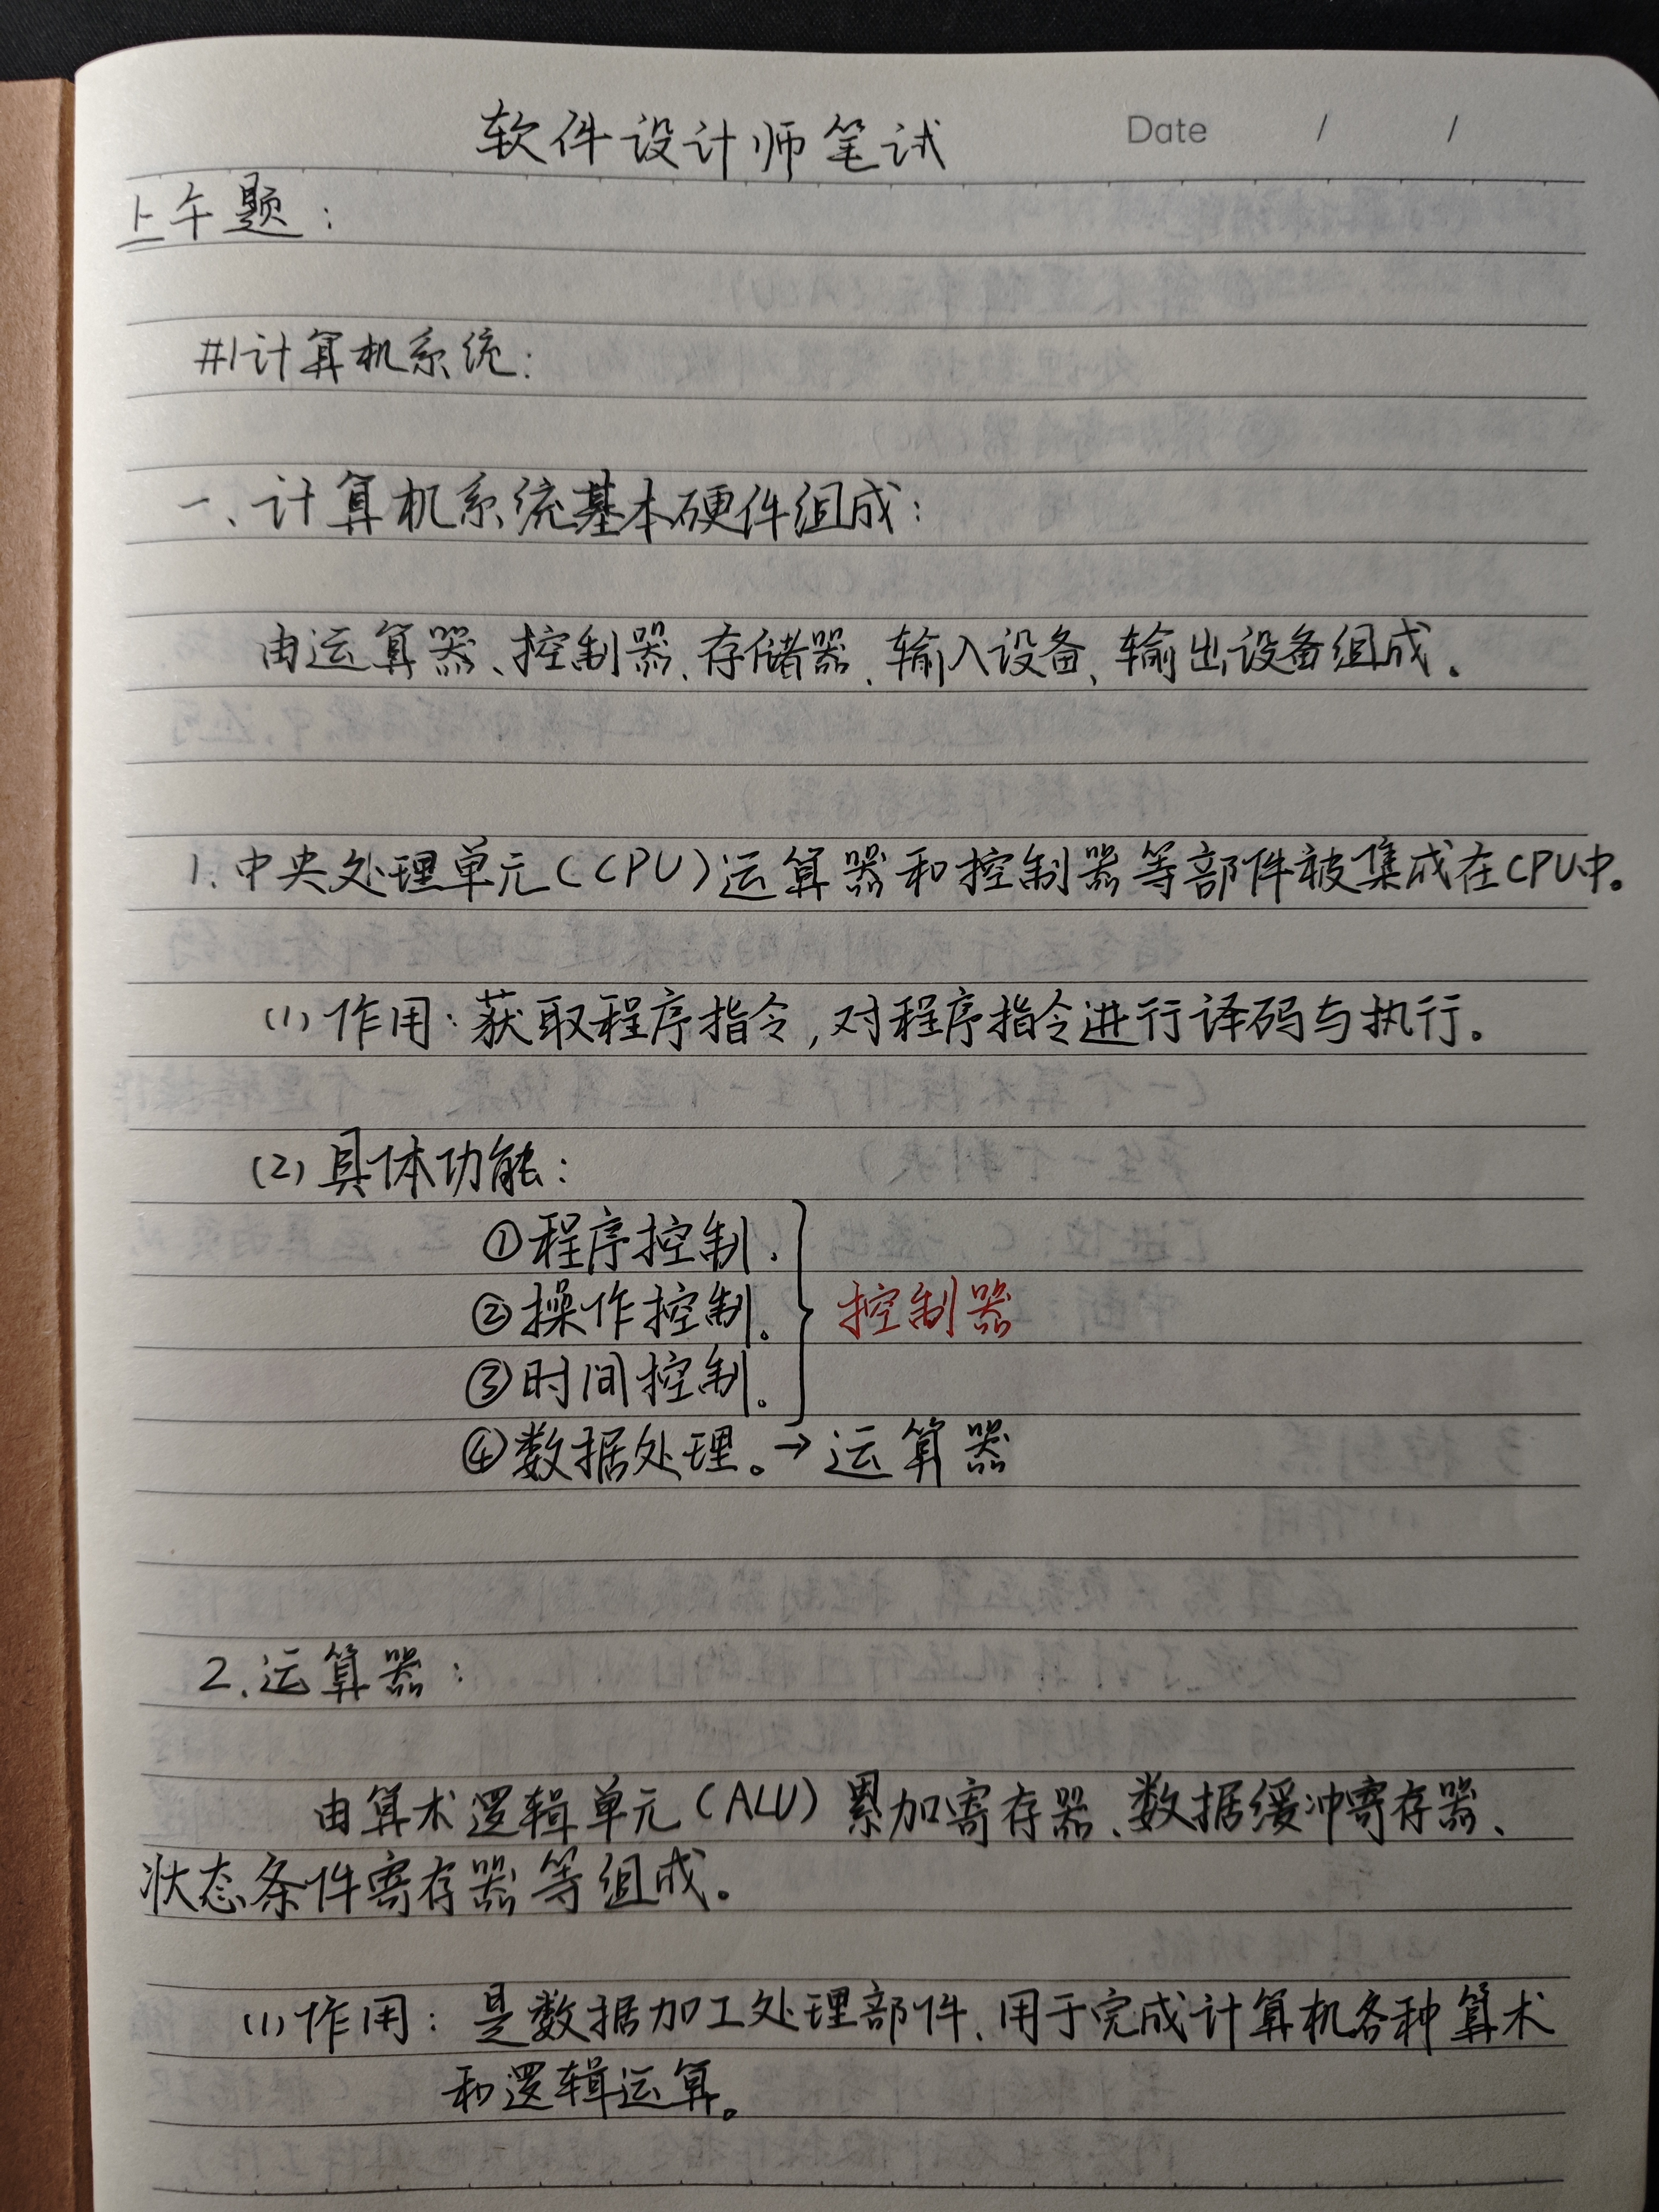 软件设计师笔试
Date / /
上午题：
#1计算机系统：
一、计算机系统基本硬件组成：
由运算器、控制器、存储器、输入设备、输出设备组成。
1.中央处理单元(CPU)运算器和控制器等部件被集成在CPU中。
(1)作用：获取程序指令,对程序指令进行译码与执行。
(2)具体功能：
①程序控制.
②操作控制。
控制器
③时间控制。
④数据处理。→运算器
2.运算器：
由算术逻辑单元(ALU)累加寄存器、数据缓冲寄存器、
状态条件寄存器等组成。
(1)作用：是数据加工处理部件、用于完成计算机各种算术
和逻辑运算。